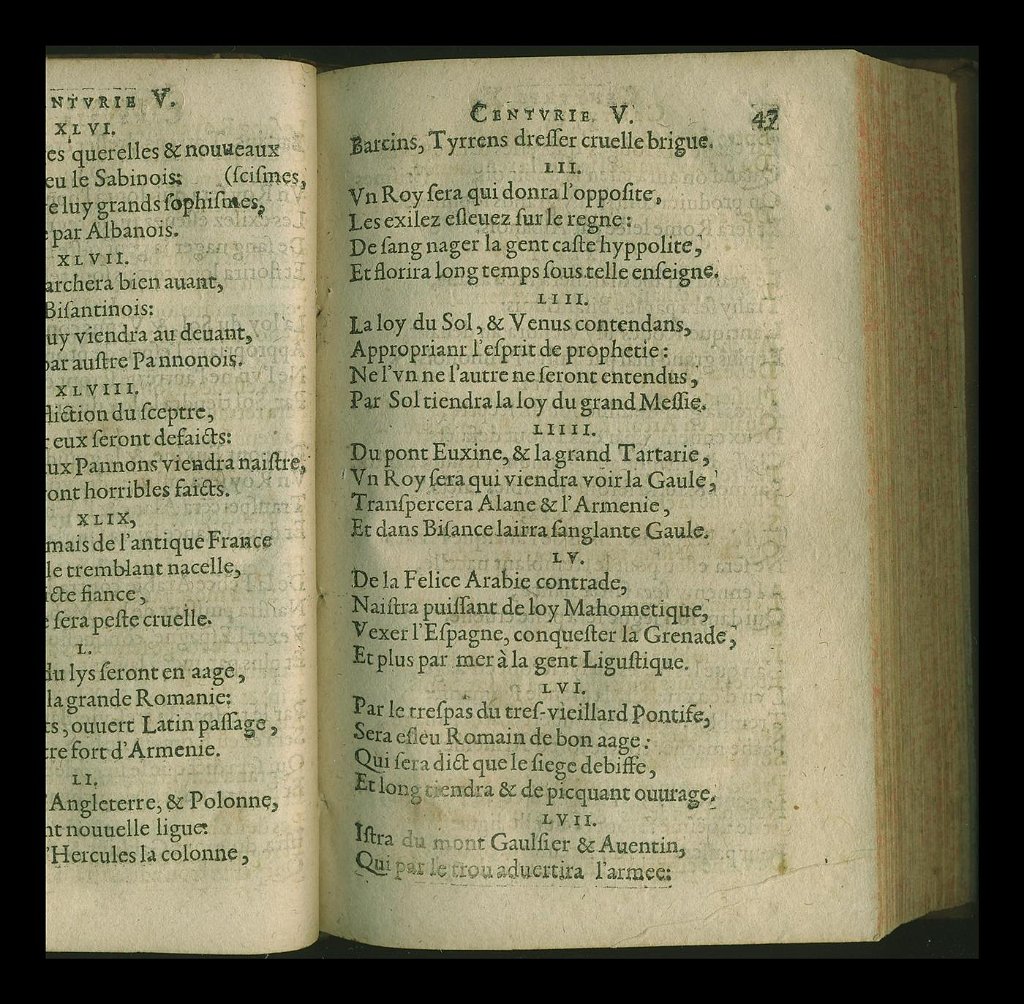 NTVRIE V.
XLVI.
es querelles & nouueaux
eu le Sabinois: (ſciſmes,
e luy grands ſophiſmes,
par Albanois.
XLVII.
archera bien auant,
Biſantinois:
uy viendra au deuant,
par auſtre Pannonois.
XLVIII.
liction du ſceptre,
eux ſeront defaicts:
ux Pannons viendra naiſtre,
ont horribles faicts.
XLIX,
mais de l'antique France
le tremblant nacelle,
icte fiance,
ſera peſte cruelle.
L.
du lys ſeront en aage,
la grande Romanie:
ts, ouuert Latin paſſage,
tre fort d'Armenie.
LI.
'Angleterre, & Polonne,
nt nouuelle ligue:
'Hercules la colonne,
CENTVRIE V. 47
Barcins, Tyrrens dreſſer cruelle brigue.
LII.
Vn Roy ſera qui donra l'oppoſite,
Les exilez eſleuez ſur le regne:
De ſang nager la gent caſte hyppolite,
Et florira long temps ſous telle enſeigne.
LIII.
La loy du Sol, & Venus contendans,
Approprianr l'eſprit de prophetie:
Ne l'vn ne l'autre ne ſeront entendus,
Par Sol tiendra la loy du grand Meſſie.
LIIII.
Du pont Euxine, & la grand Tartarie,
Vn Roy ſera qui viendra voir la Gaule,
Tranſpercera Alane & l'Armenie,
Et dans Biſance lairra ſanglante Gaule.
LV.
De la Felice Arabie contrade,
Naiſtra puiſſant de loy Mahometique,
Vexer l'Eſpagne, conqueſter la Grenade,
Et plus par mer à la gent Liguſtique.
LVI.
Par le treſpas du treſ-vieillard Pontife,
Sera eſleu Romain de bon aage:
Qui ſera dict que le ſiege debiffe,
Et long tiendra & de picquant ouurage.
LVII.
Iſtra du mont Gaulſier & Auentin,
Qui par le trou aduertira l'armee: